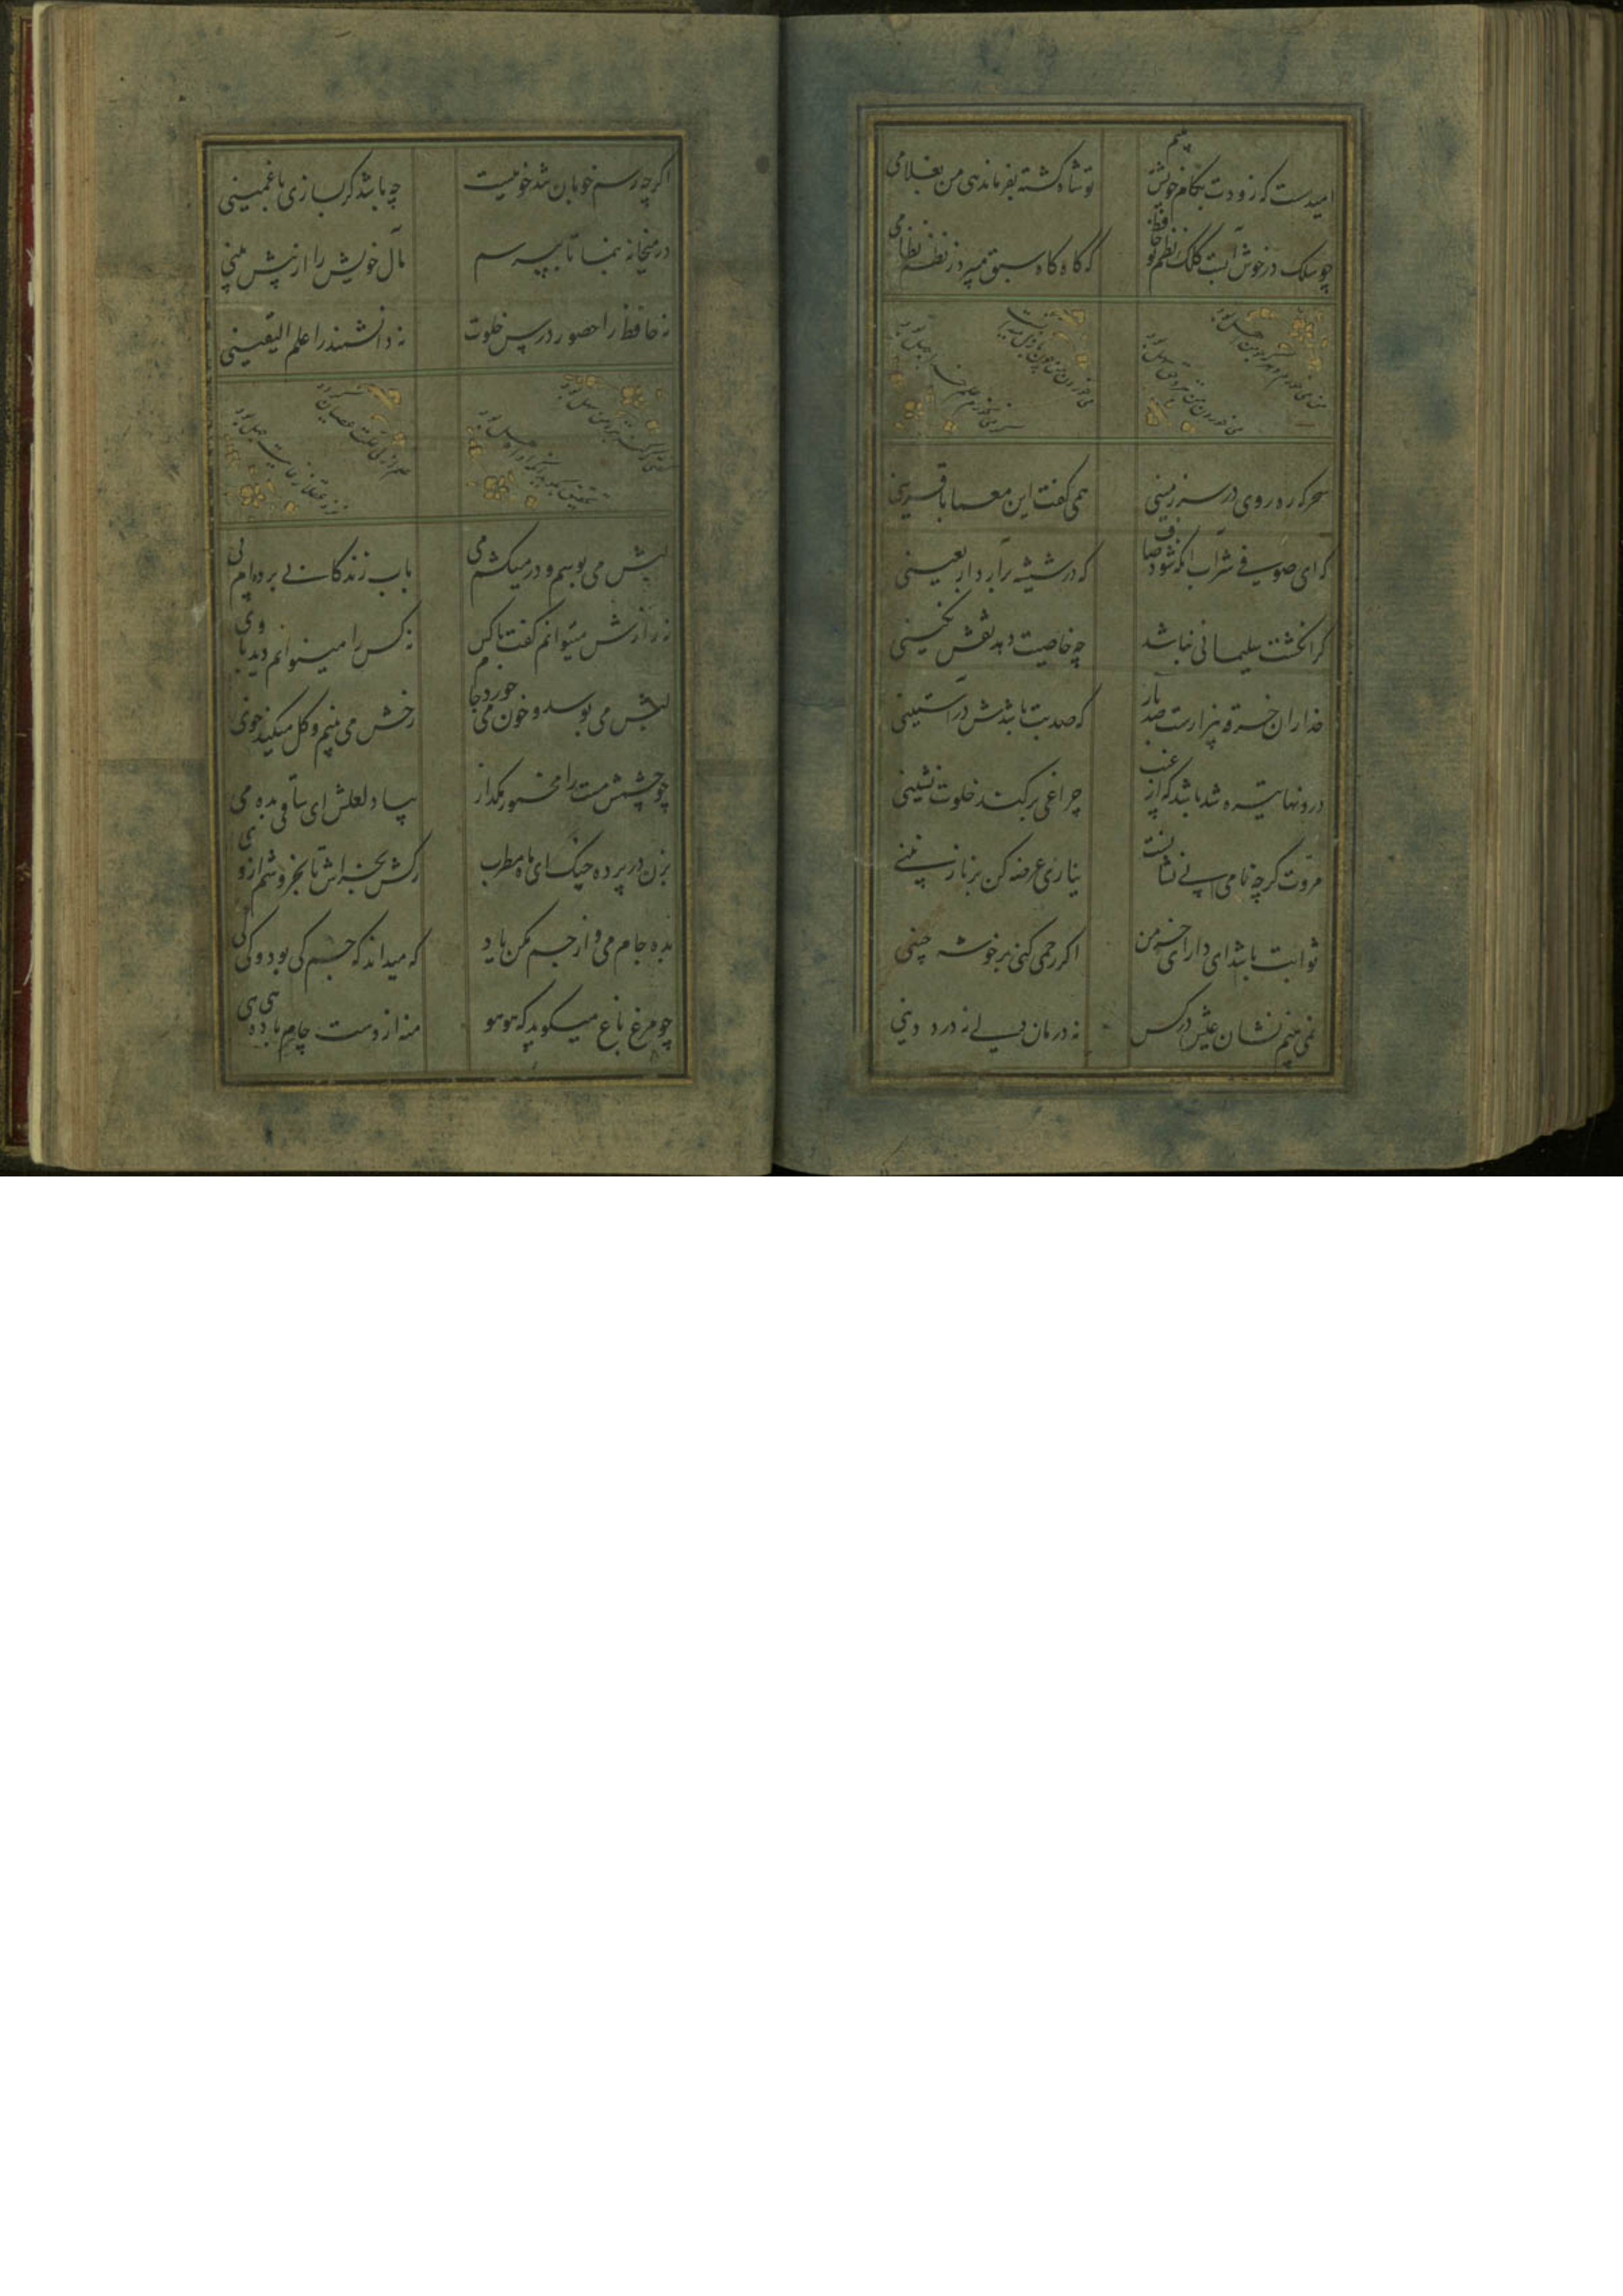 امیدست که زودت بکام خویش بینم
تو شاه کشته بفرماندهی من بغلامی
چو سلک در خوش آبست کلک نظم تو حافظ
که گاه گاه سبق میبرد ز نظم نظامی
من می خورم و هر که چو من اهل بود
می خوردن من بنزد او سهل بود
می خوردن من حق ز ازل میدانست
گر می نخورم علم خدا جهل بود
سحرکه ره روی در سرزمینی
همی گفت این معما با قرینی
که ای صوفی شراب انکه شود صاف
که در شیشه برآرد اربعینی
کر انکشت سلیمانی نباشد
چه خاصیت دهد نقش نکینی
خدا زان خرقه بیزارست صد بار
که صد بت باشدش در آستینی
درونها تیره شد باشد که از غیب
چراغی برکند خلوت نشینی
مروت کرچه نامی بی نشانست
نیازی عرضه کن بر نازنینی
ثوابت باشد ای دارای خرمن
اکر رحمی کنی بر خوشه چینی
نمی بینم نشاط عیش در کس
نه درمان دلی نه درد دینی
اکرچه رسم خوبان تندخوییست
چه باشد کر بسازی با غمینی
در میخانه بنما تا بپرسم
مآل خویش را از پیش بینی
نه حافظ را حضور درس خلوت
نه دانشمند را علم الیقینی
علم ازلی علت عصیان
لبش می بوسم و در میکشم می
بآب زندکانی برده ام پی
نه رازش میتوانم کفت با کس
نه کس را میتوانم دید با وی
لبش می بوسد و خون می خورد جام
رخش می بینم و کل میکند خوی
چو چشمش مست را مخمور مکذار
بیاد لعلش ای ساقی بده می
بزن در پرده چنک ای ماه مطرب
رکش بخراش تا بخروشم از وی
بده جام می و از جم مکن یاد
که میداند که جم کی بود و کی کی
چو مرغ باغ میکوید که هو هو
منه از دست جام باده هی هی